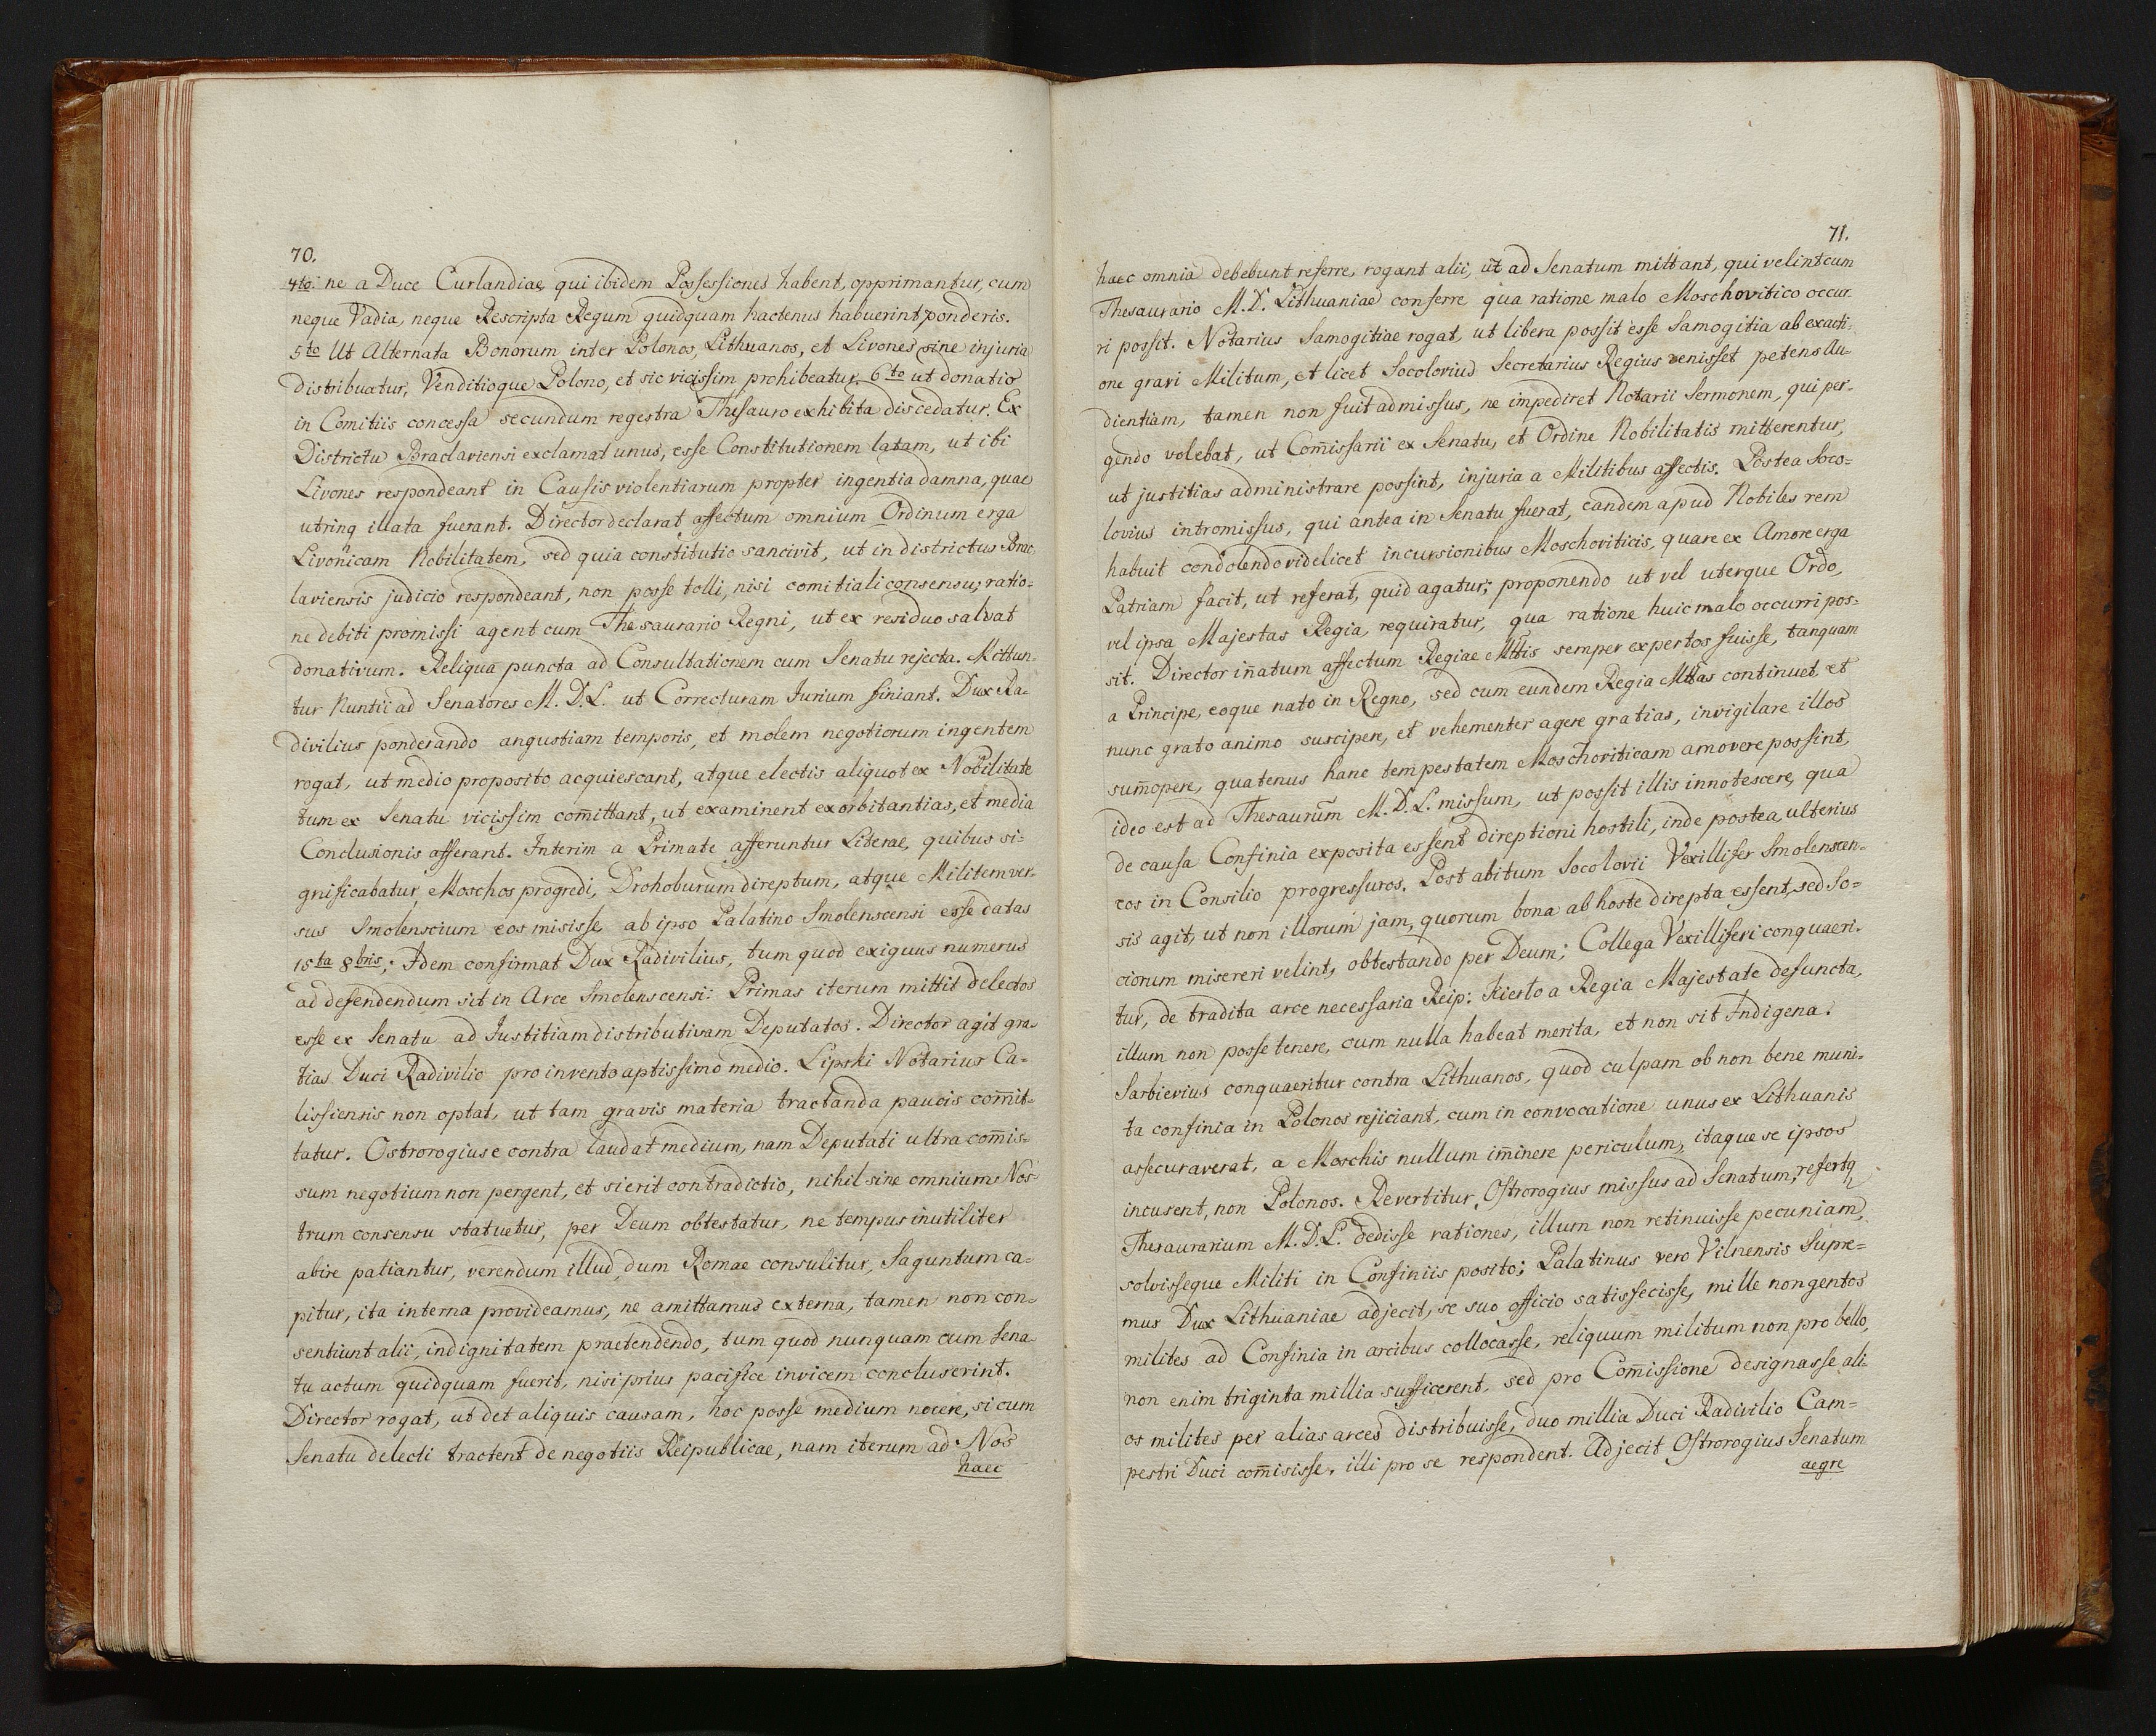 70.
4to. ne a Duce Curlandiae qui ibidem Possessiones habent, opprimantur, cum
neque Vadia, neque Rescripta Regum quidquam hactenus habuerint ponderis.
5to Ut Alternata Bonorum inter Polonos, Lithuanos, et Livones sine injuria
distribuatur, Venditioque Polono, et sic vicissim prohibeatur. 6to ut donatio
in Comitiis concessa secundum regestra Thesauro exhibita discedatur. Ex
Districtu Braclaviensi exclamat unus, esse Constitutionem latam, ut ibi
Livones respondeant in Causis violentiarum propter ingentia damna, quae
utrinq illata fuerant. Director declarat affectum omnium Ordinum erga
Livonicam Nobilitatem, sed quia constitutio sancivit, ut in districtus Brac-
laviensis judicio respondeant, non posse tolli, nisi comitiali consensu, ratio-
ne debiti promissi agent cum Thesaurario Regni, ut ex residuo salvat
donativum. Reliqua puncta ad Consultationem cum Senatu rejecta. Mittun-
tur Nuntii ad Senatores M. D. L. ut Correcturam Jurium finiant. Dux Ra-
divilius ponderando angustiam temporis, et molem negotiorum ingentem
rogat, ut medio proposito acquiescant, atque electis aliquot ex Nobilitate
tum ex Senatu vicissim com̄ittant, ut examinent exorbitantias, et media
Conclusionis afferant. Interim a Primate afferuntur Literae, quibus si-
gnificabatur, Moschos progredi, Drohoburum direptum, atque Militem ver-
sus Smolenscium eos misisse, ab ipso Palatino Smolenscensi esse datas
15ta 8bris; Idem confirmat Dux Radivilius, tum quod exiguus numerus
ad defendendum sit in Arce Smolenscensi: Primas iterum mittit delectos
esse ex Senatu ad Justitiam distributivam Deputatos. Director agit gra-
tias Duci Radivilio pro invento aptissimo medio. Lipski Notarius Ca-
lissiensis non optat, ut tam gravis materia tractanda paucis com̄it-
tatur. Ostrorogius e contra laudat medium, nam Deputati ultra com̄is-
sum negotium non pergent, et si erit contradictio, nihil sine omnium Nos-
trum consensu statuetur, per Deum obtestatur, ne tempus inutiliter
abire patiantur, verendum illud, dum Romae consulitur, Saguntum ca-
pitur, ita interna provideamus, ne amittamus externa, tamen non con-
sentiunt alii, indignitatem praetendendo, tum quod nunquam cum Sena
tu actum quidquam fuerit, nisi prius pacifice invicem concluserint.
Director rogat, ut det aliquis causam, hoc posse medium nocere, si cum
Senatu delecti tractent de negotiis Reipublicae, nam iterum ad Nos
haec
71.
haec omnia debebunt referre, rogant alii, ut ad Senatum mittant, qui velint cum
Thesaurario M. D. Lithuaniae conferre qua ratione malo Moschovitico occur-
ri possit. Notarius Samogitiae rogat, ut libera possit esse Samogitia ab exacti-
one gravi Militum, et licet Socolovius Secretarius Regius venisset petens Au-
dientiam, tamen non fuit admissus, ne impediret Notarii Sermonem, qui per-
gendo volebat, ut Com̄issarii ex Senatu, et Ordine Nobilitatis mitterentur,
ut justitias administrare possint, injuria a Militibus affectis. Postea Soco-
lovius intromissus, qui antea in Senatu fuerat, eandem apud Nobiles rem
habuit condolendo videlicet incursionibus Moschoviticis, quare ex Amore erga
Patriam facit, ut referat, quid agatur; proponendo ut vel uterque Ordo,
vel ipsa Majestas Regia, requiratur, qua ratione huic malo occurri pos-
sit. Director in̄atum affectum Regiae Mttis semper expertos fuisse, tanquam
a Principe, eoque nato in Regno, sed cum eundem Regia Mttas continuet et
nunc grato animo suscipere, et vehementer agere gratias, invigilare illos
sum̄opere, quatenus hanc tempestatem Moschoviticam amovere possint,
ideo est ad Thesaurum̄ M. D. L. missum, ut possit illis innotescere, qua
de causa Confinia exposita essent direptioni hostili, inde postea ulterius
eos in Consilio progressuros. Post abitum Socolovii Vexillifer Smolenscen-
sis agit, ut non illorum jam, quorum bona ab hoste direpta essent, sed So-
ciorum misereri velint, obtestando per Deum; Collega Vexilliferi conquaeri-
tur, de tradita arce necessaria Reip: Kierło a Regia Majestate defuncta,
illum non posse tenere, cum nulla habeat merita, et non sit Indigena.
Sarbievius conquaeritur contra Lithuanos, quod culpam ob non bene muni-
ta confinia in Polonos rejiciant, cum in convocatione unus ex Lithuanis
assecuraverat, a Moschis nullum im̄inere periculum, itaque se ipsos
incusent, non Polonos. Revertitur Ostrorogius missus ad Senatum, refertq
Thesaurarium M. D. L. dedisse rationes, illum non retinuisse pecuniam,
solvisseque Militi in Confiniis posito; Palatinus vero Vilnensis Supre-
mus Dux Lithuaniae adjecit, se suo officio satisfecisse, mille nongentos
milites ad Confinia in arcibus collocasse, reliquum militum non pro bello,
non enim triginta millia sufficerent, sed pro Com̄issione designasse ali-
os milites per alias arces distribuisse, duo millia Duci Radivilio Cam-
pestri Duci com̄isisse, illi pro se respondent. Adjecit Ostrorogius Senatum
aegre